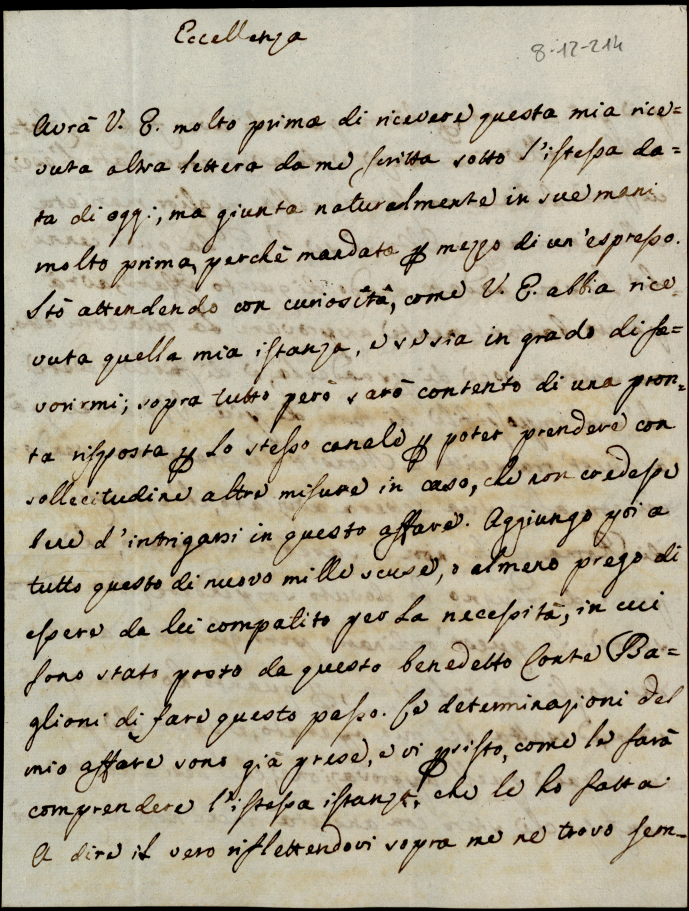 Eccellenza
8-12-214
Avrà V. E. molto prima di ricevere questa mia rice=
vuta altra lettera da me scritta sotto l'istessa da=
ta di oggi, ma giunta naturalmente in sue mani
molto prima, perchè mandata ꝑ mezzo di un'espresso.
Stò attendendo con curiosità, come V. E. abbia rice=
vuta quella mia istanza, e se sia in grado di fa=
vorirmi; sopra tutto però sarò contento di una pron=
ta risposta ꝑ lo stesso canale ꝑ poter prendere con
sollecitudine altre misure in caso, che non credesse
Lei d'intrigarsi in questo affare. Aggiungo poi a
tutto questo di nuovo mille scuse, o almeno prego di
essere da lei compatito per la necessità, in cui
sono stato posto da questo benedetto Conte Ba=
glioni di fare questo passo. Le determinazioni del
mio affare sono già prese, e vi ꝑsisto, come le farà
comprendere l'istessa istanza, che le ho fatta.
A dire il vero riflettendovi sopra me ne trovo sem=